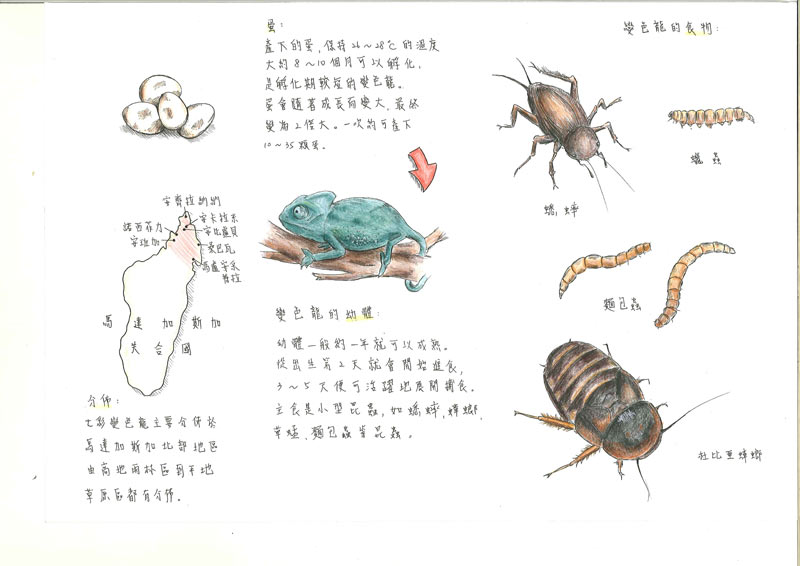 蛋:
產下的蛋,保持26～28℃的溫度
大約8～10個月可以孵化,
是孵化期較短的變色龍。
蛋會隨著成長而變大,最終
變為2倍大。一次約可產下
10～35顆蛋。
變色龍的食物:
蟋蟀
蠟蟲
麵包蟲
杜比亞蟑螂
安齊拉納納
安卡拉系
安比盧貝
諾西菲力
安班加
桑巴瓦
馬盧安系
普拉
馬達加斯加
共合國
變色龍的幼體:
幼體一般約一年就可以成熟。
從出生第2天就會開始進食,
3～5天便可活躍地展開捕食。
主食是小型昆蟲,如蟋蟀,蟑螂,
草蜢,麵包蟲等昆蟲。
分佈:
七彩變色龍主要分佈於
馬達加斯加北部地區
由高地雨林區到平地
草原區都有分佈。